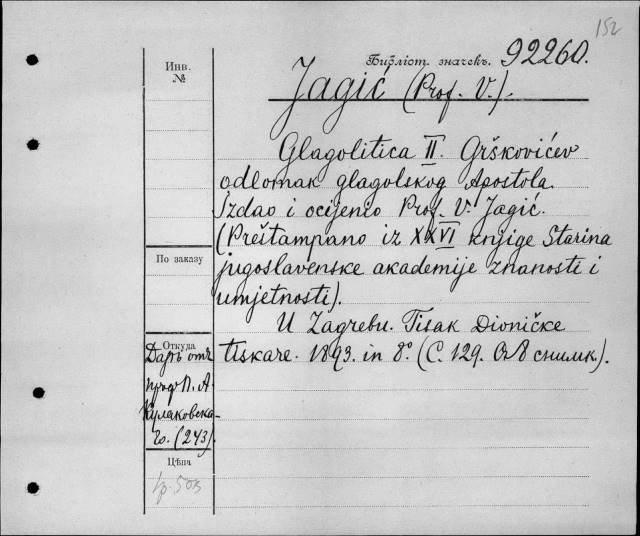 152
Инв.
№
Библіот. значекъ. 92260.
Jagić (Prof. V.).
Glagolitica II. Grškovićev
odlomak glagolskog Apostola.
Izdao i ocijenio Prof. V. Jagić.
(Preštampano iz XXVI knjige Starina
По заказу
jugoslavenske akademije znanosti i
umjetnosti).
U Zagrebu. Tisak Dioničke
Откуда
tiskare. 1893. in 8º (С. 129. Съ 8 снимк.).
Даръ отъ
проф. П. А.
Кулаковска-
го. (243).
Цѣна